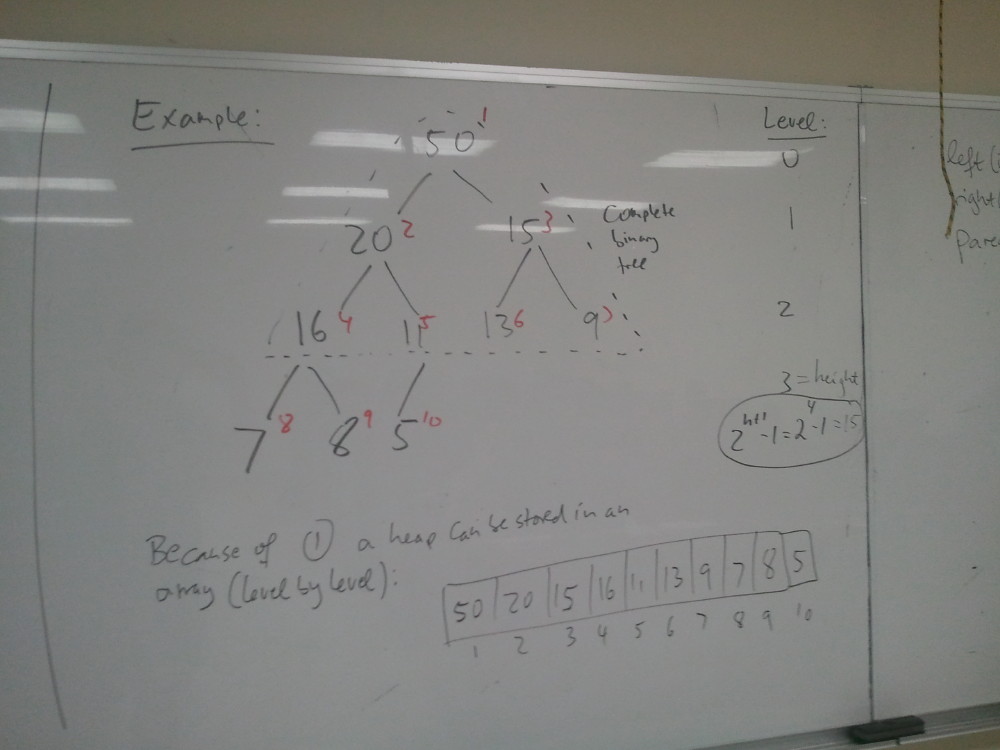 Example:
50 1
Level:
0
20 2
15 3
Complete
binary
tree
1
16 4
11 5
13 6
9 7
2
3 = height
2^h+1 - 1 = 2^4 - 1 = 15
7 8
8 9
5 10
Because of ① a heap can be stored in an
array (level by level):
50 20 15 16 11 13 9 7 8 5
1 2 3 4 5 6 7 8 9 10
left (
right (
pare